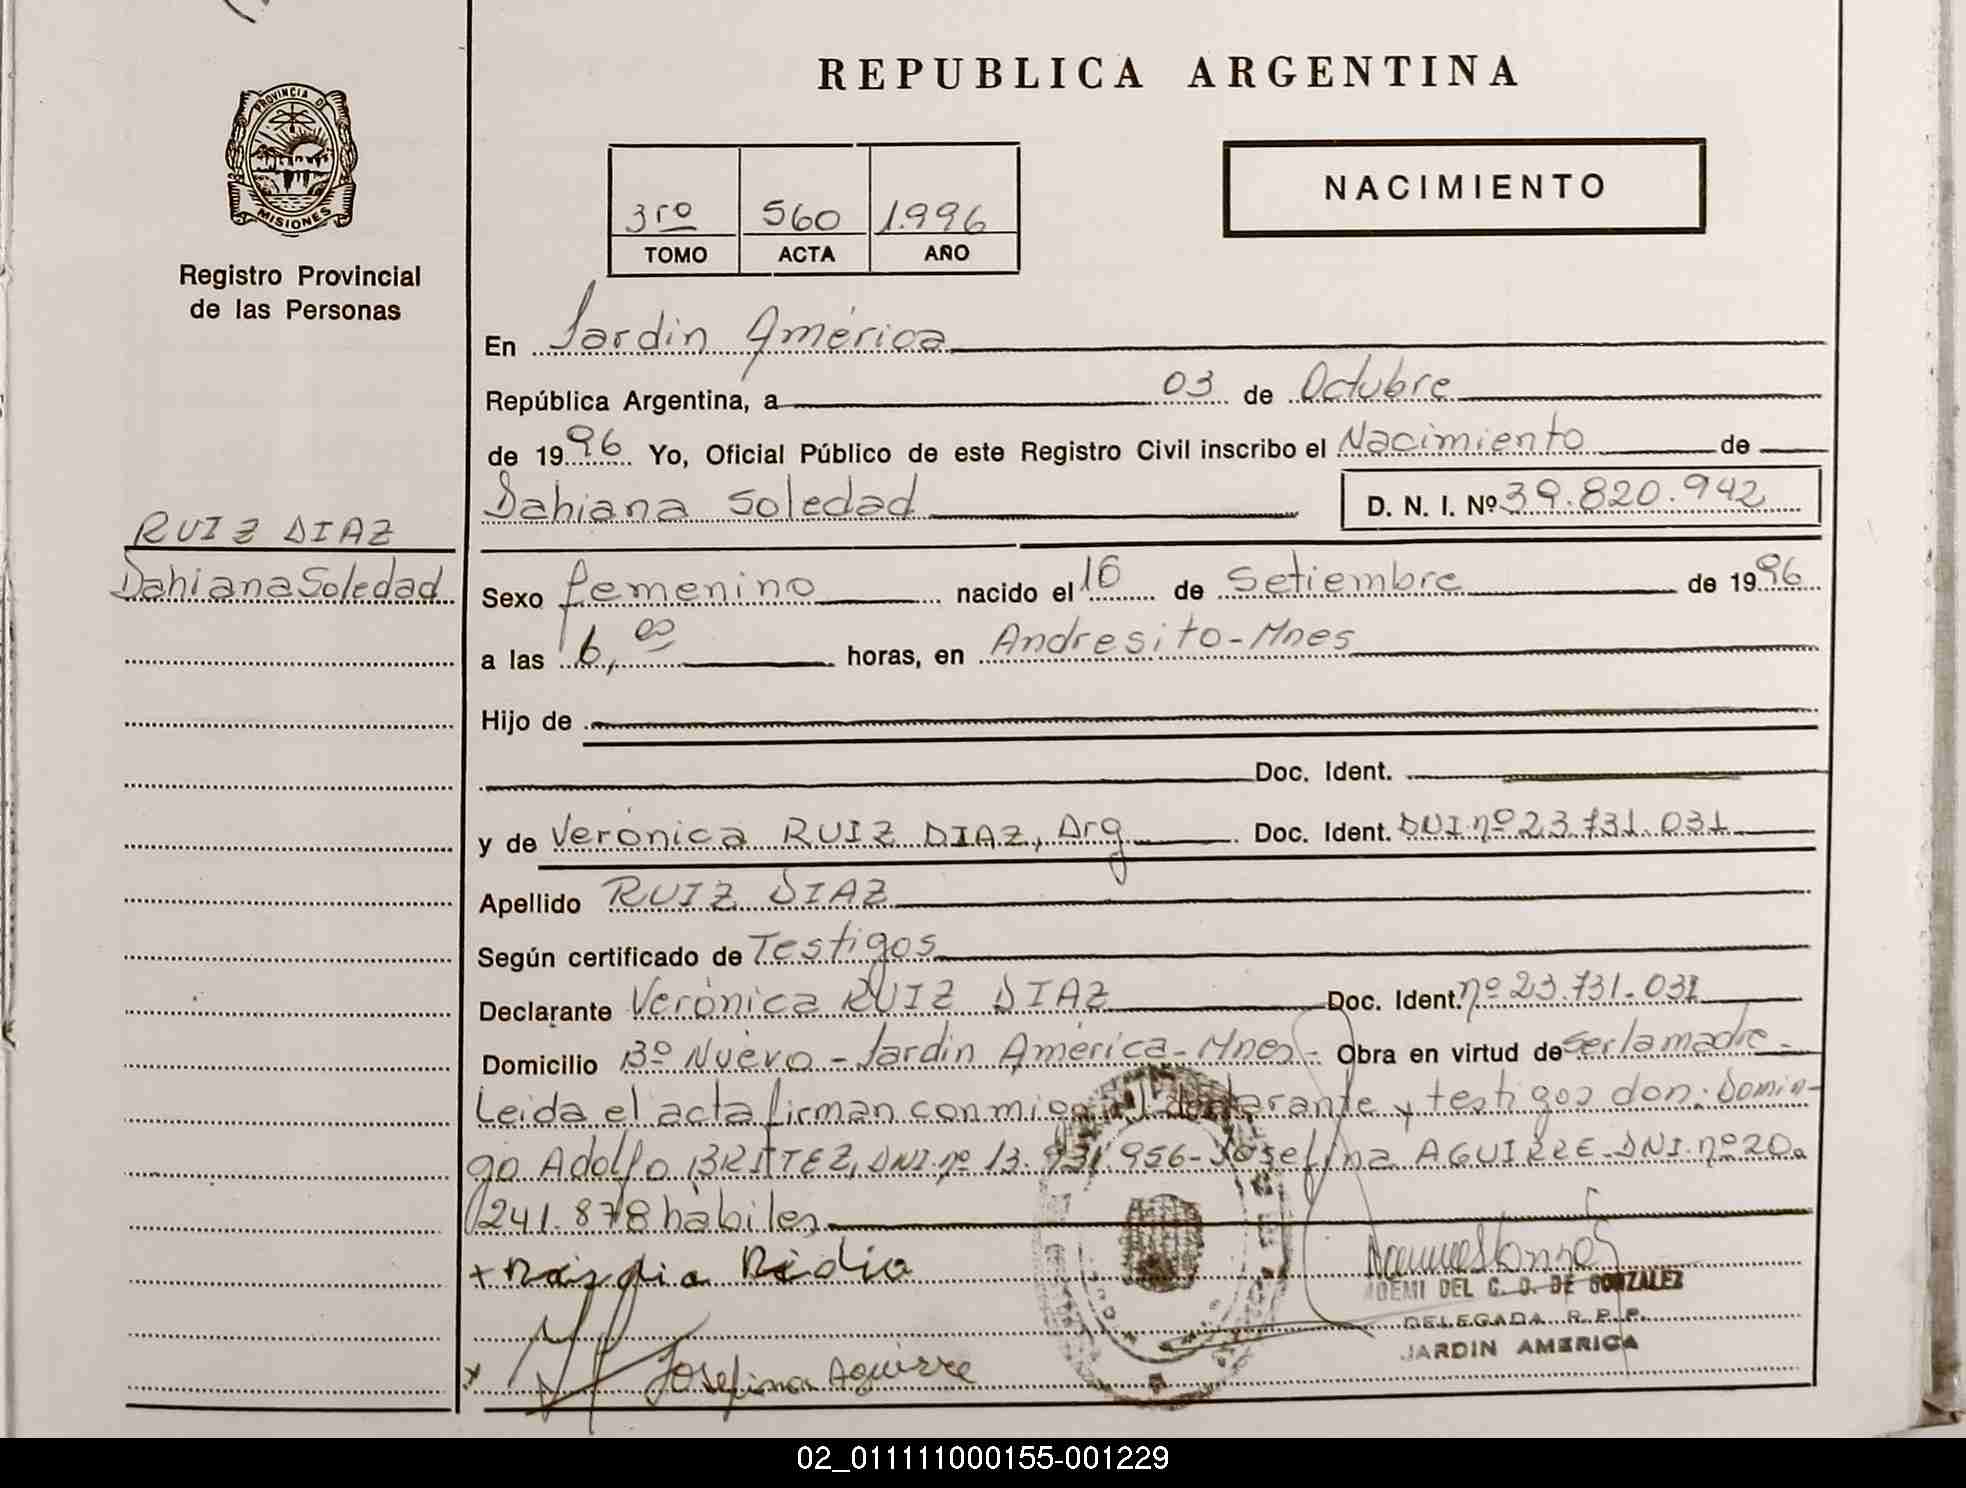 REPUBLICA ARGENTINA
PROVINCIA D
MISIONES
Registro Provincial
de las Personas
3ro 560 1.996
TOMO ACTA AÑO
NACIMIENTO
En Jardin América
República Argentina, a 03 de Octubre
de 1996 Yo, Oficial Público de este Registro Civil inscribo el Nacimiento de
Dahiana Soledad D. N. I. Nº 39.820.942
RUIZ DIAZ
Dahiana Soledad
Sexo femenino nacido el 16 de Setiembre de 1996
a las 6,00 horas, en Andresito-Mnes
Hijo de
Doc. Ident.
y de Verónica RUIZ DIAZ, Arg Doc. Ident. DNI nº 23.731.031
Apellido RUIZ DIAZ
Según certificado de Testigos
Declarante Verónica RUIZ DIAZ Doc. Ident. nº 23.731.031
Domicilio Bº Nuevo - Jardin América - Mnes - Obra en virtud de ser la madre -
Leida el acta firman conmigo declarante y testigos don: Domin-
go Adolfo BRITEZ, DNI. nº 13.931.956 - Josefina AGUIRRE DNI. nº 20.
241.878 habiles
Josefina Aguirre
NOEMI DEL C. D. DE GONZALEZ
DELEGADA R. P. P.
JARDIN AMERICA
02_011111000155-001229